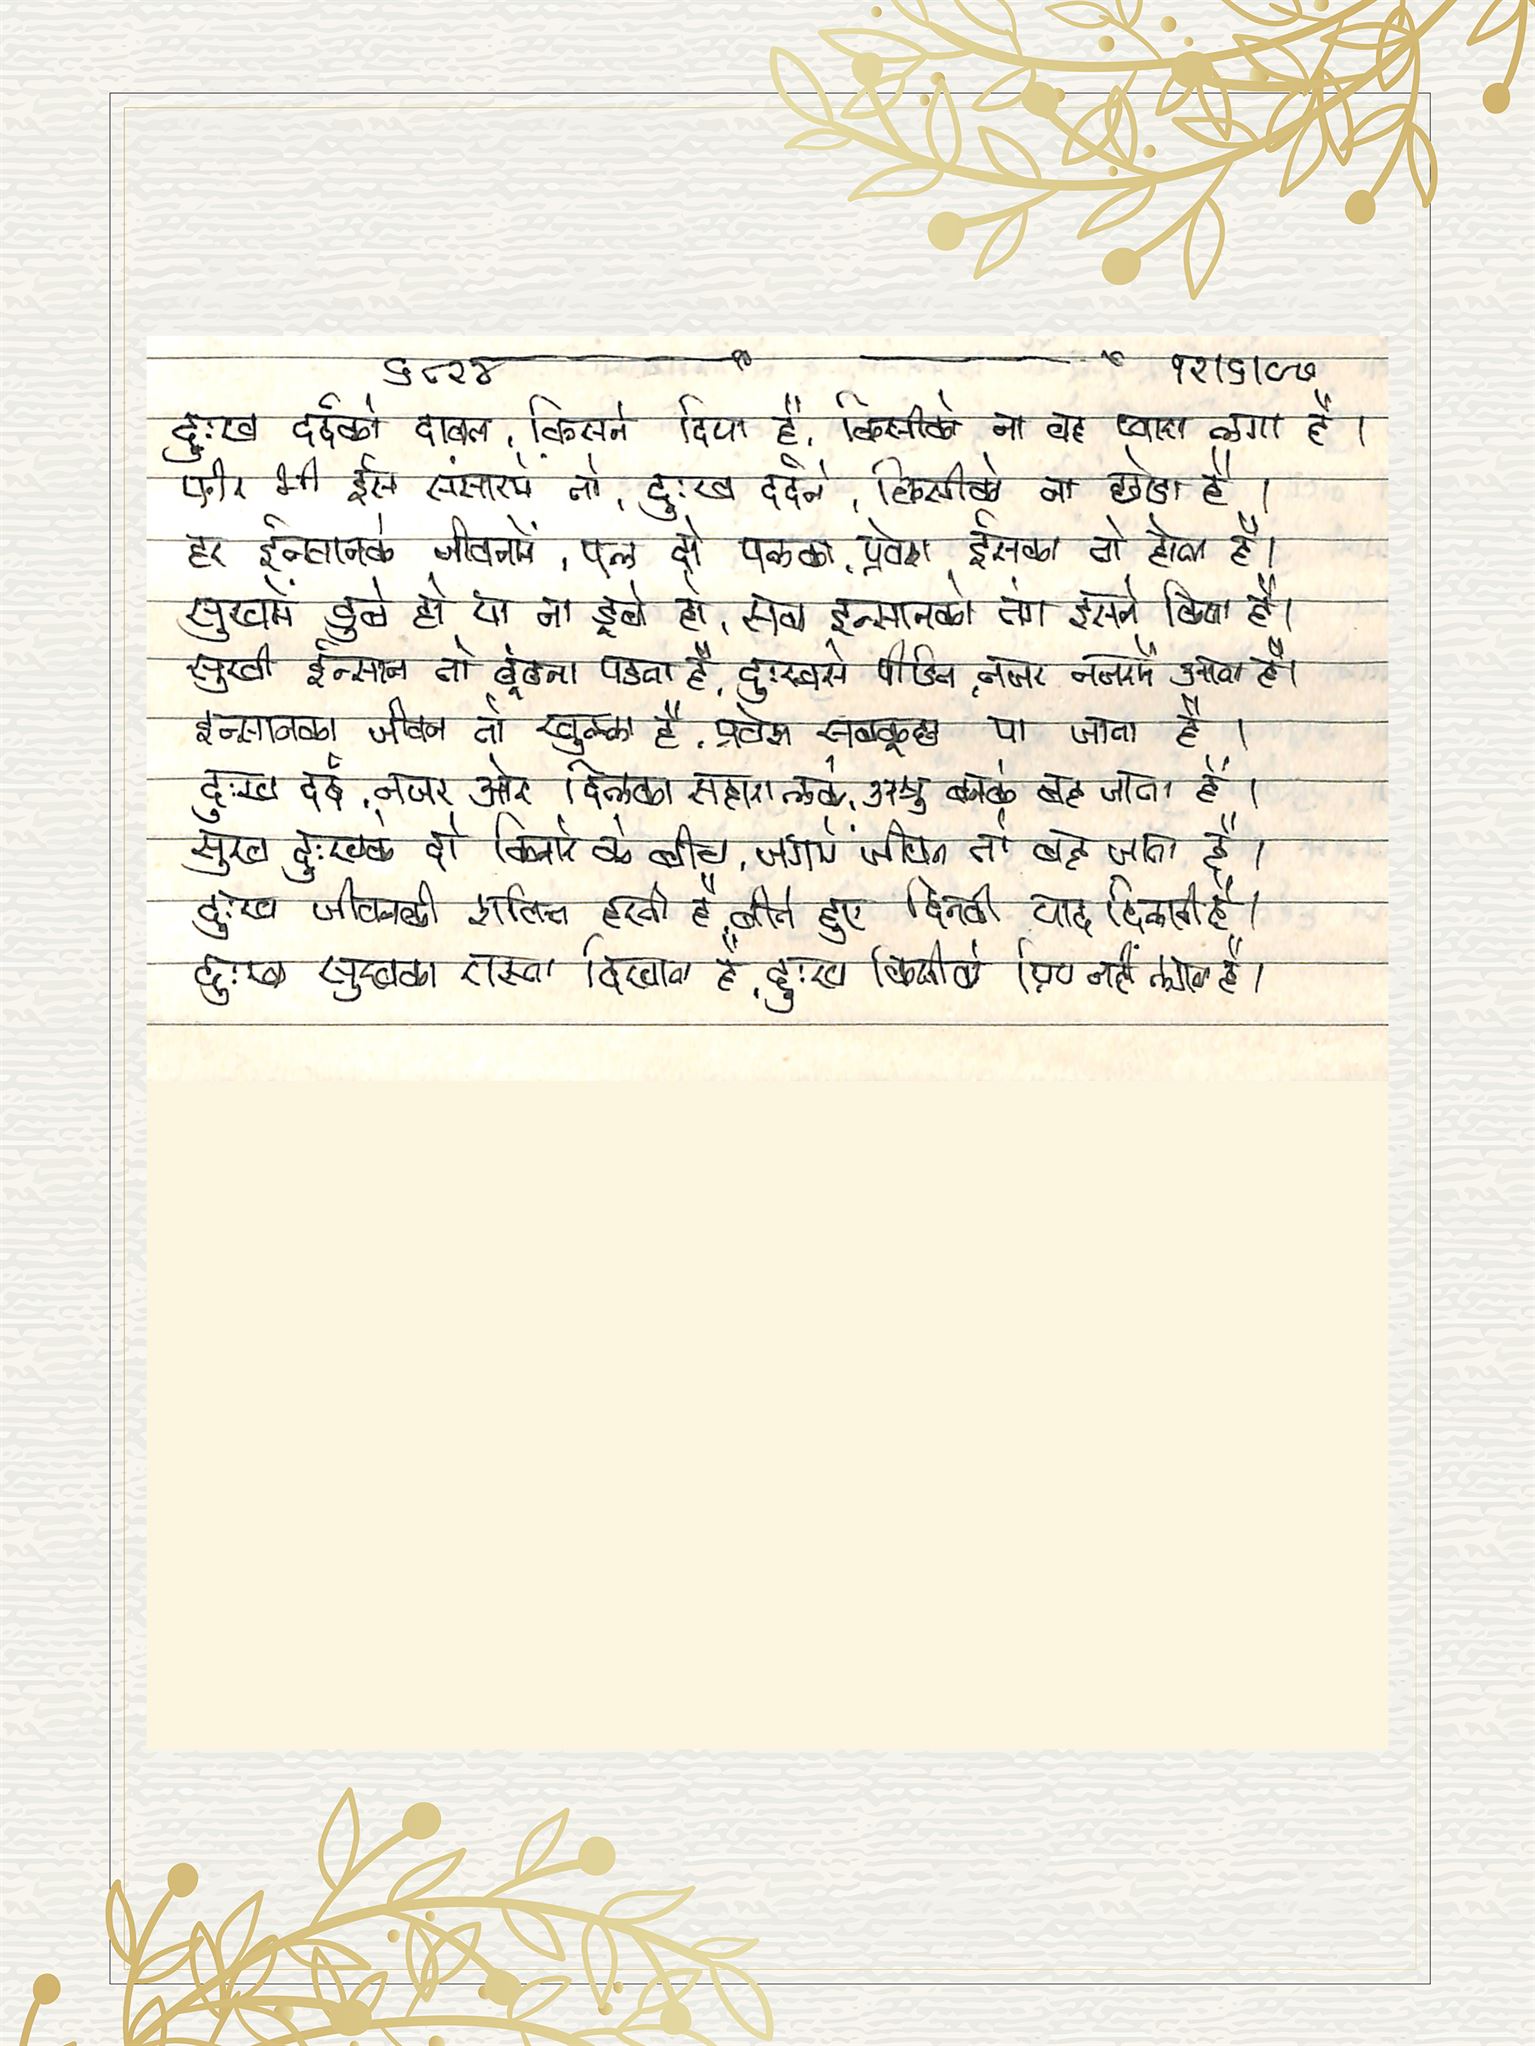 ६८२४ १२।६।८७
दुःख दर्दको दावत, किसने दिया है, किसीको ना वह प्यारा लगा है ।
फीर भी ईस संसारमें तो, दुःख दर्दने, किसीको ना छोडा है ।
हर ईन्सानके जीवनमें, पल दो पलका, प्रवेश ईसका तो होता है ।
सुखमें डुबे हो या ना डूबे हो, सब इन्सानको तंग इसने किया है ।
सुखी ईन्सान तो ढूंढना पडता है, दुःखसे पीडित, नजर नजरमें आता है ।
इन्सानका जीवन तो खुल्ला है, प्रवेश सबकूछ पा जाता है ।
दुःख दर्द, नजर और दिलका सहारा लेके, अश्रु बनके बह जाता है ।
सुख दुःखके दो किनारे के बीच, जगमें जीवन तो बह जाता है ।
दुःख जीवनकी शक्ति हरती है, बीते हुए दिनकी याद दिलाती है ।
दुःख सुखका रास्ता दिखाता है, दुःख किसीको प्रिय नहीं लगता है ।